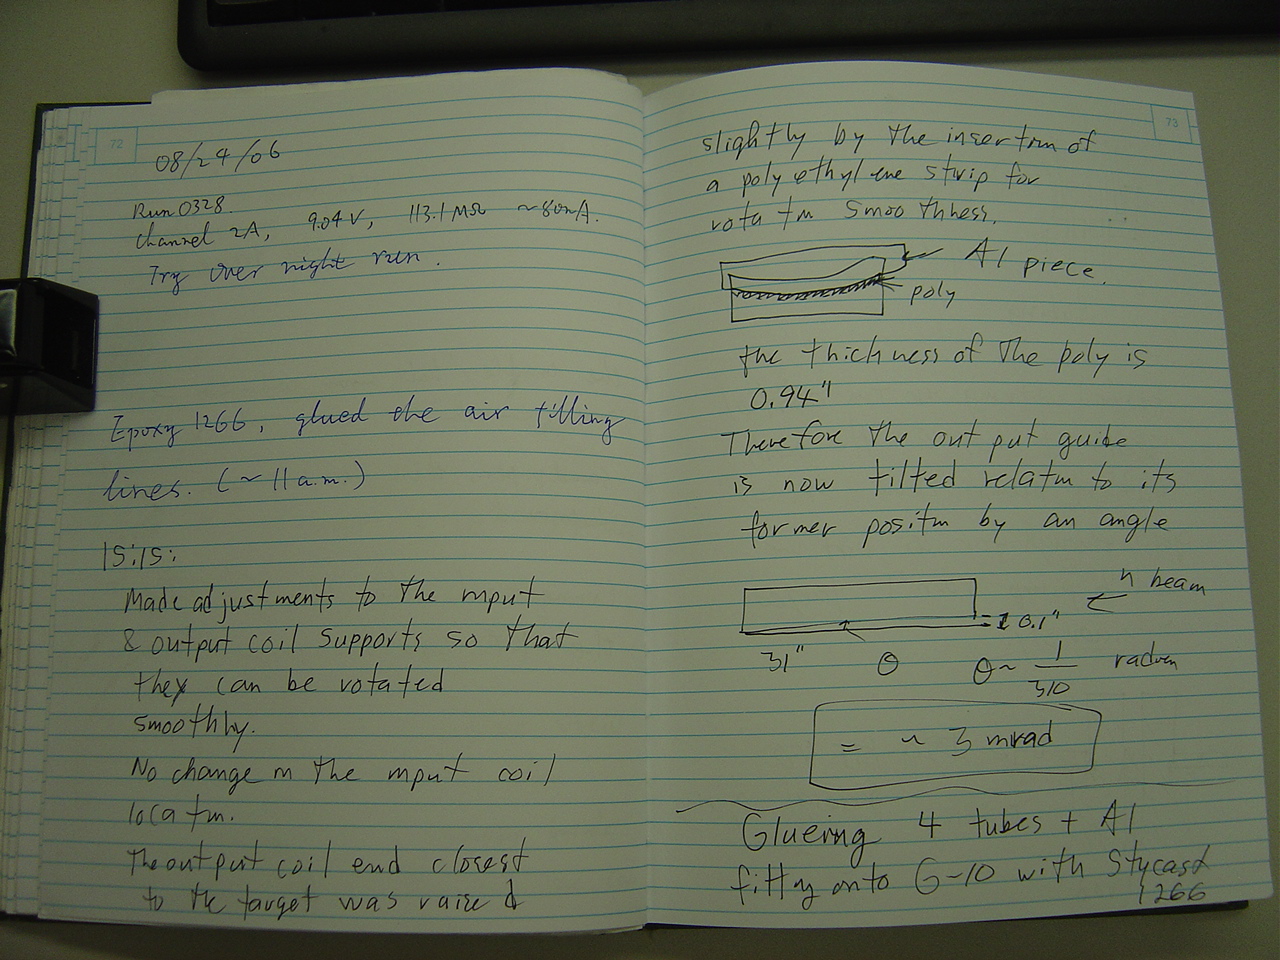 72
08/24/06
Run 0328.
channel 2A, 9.04 V, 113.1 MΩ ~80nA.
Try over night run.
Epoxy 1266, glued the air filling
lines. (~ 11 a.m.)
15:15:
Made adjustments to the input
& output coil supports so that
they can be rotated
smoothly.
No change in the input coil
location.
The output coil end closest
to the target was raised
73
slightly by the insertion of
a polyethylene strip for
rotation smoothness.
Al piece.
poly
the thickness of the poly is
0.94"
Therefore the output guide
is now tilted relatm to its
former position by an angle
n beam
0.1"
31" θ θ ~ 1/310 radian
= ~ 3 mrad
Glueing 4 tubes + Al
fitting onto G-10 with Stycast
1266